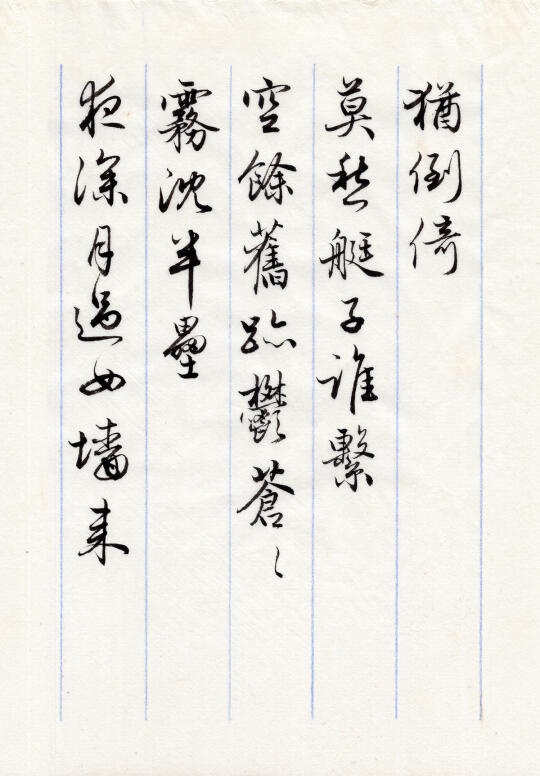 猶倒倚
莫愁艇子誰繫
空餘舊跡鬱蒼〻
霧沈半壘
夜深月過女墻来